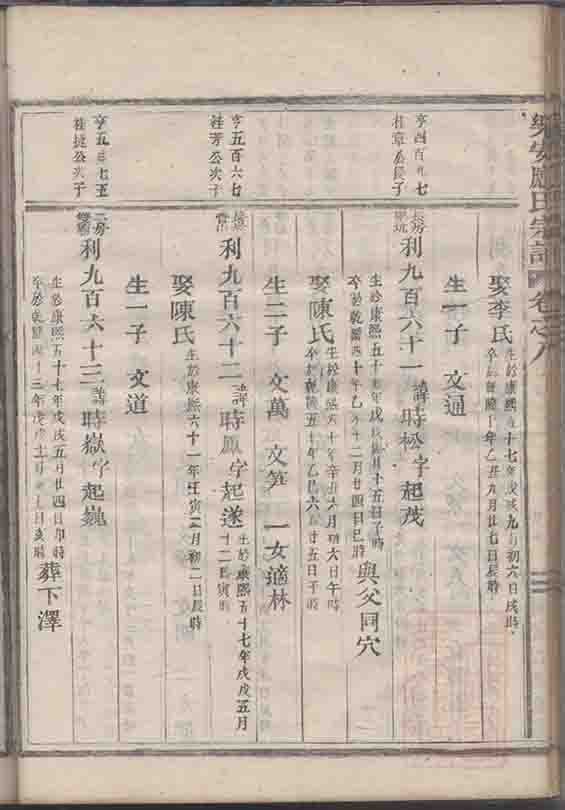 樂安應氏宗譜 卷之八
娶李氏 生於康熙五十七年戊戌九月初六日戌時
卒於乾隆十年乙丑九月廿七日辰時
生一子 文通
亨四百九七
桂章公長子
利九百六十一 諱時松字起茂
生於康熙五十七年戊戌 月十五日子時
卒於乾隆四十年乙 十二月廿四日巳時 與父同穴
娶陳氏 生於康熙六十年辛丑六月初六日午時
卒於乾隆五十年乙巳六月廿五日午時
生二子 文萬 文筭 一女適林
亨五百六七
桂芳公次子
利九百六十二 諱時鳳字起遂 生於康熙五十七年戊戌五月
廿二日寅時
娶陳氏 生於康熙六十一年壬寅二月初二日辰時
生一子 文道
亨五百七五
桂捷公次子
二房
利九百六十三 諱時嶽字起巍
生於康熙五十七年戊戌五月廿四日卯時
卒於乾隆四十三年戊戌 月 七日亥時 葬下澤